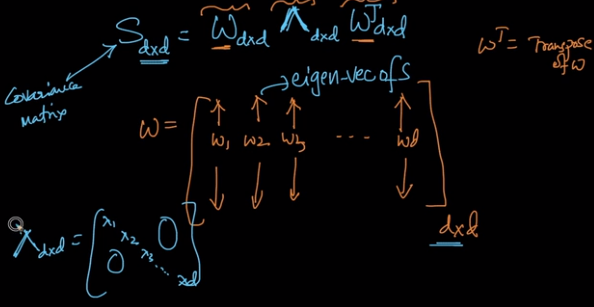 S dxd = W dxd Λ dxd W^T dxd
W^T = Transpose of W
Covariance Matrix
→ eigen-vec of S
W = [ W1 W2 W3 --- Wd ] dxd
Λ dxd = [ λ1 λ2 λ3 ... λd 0 0 ]